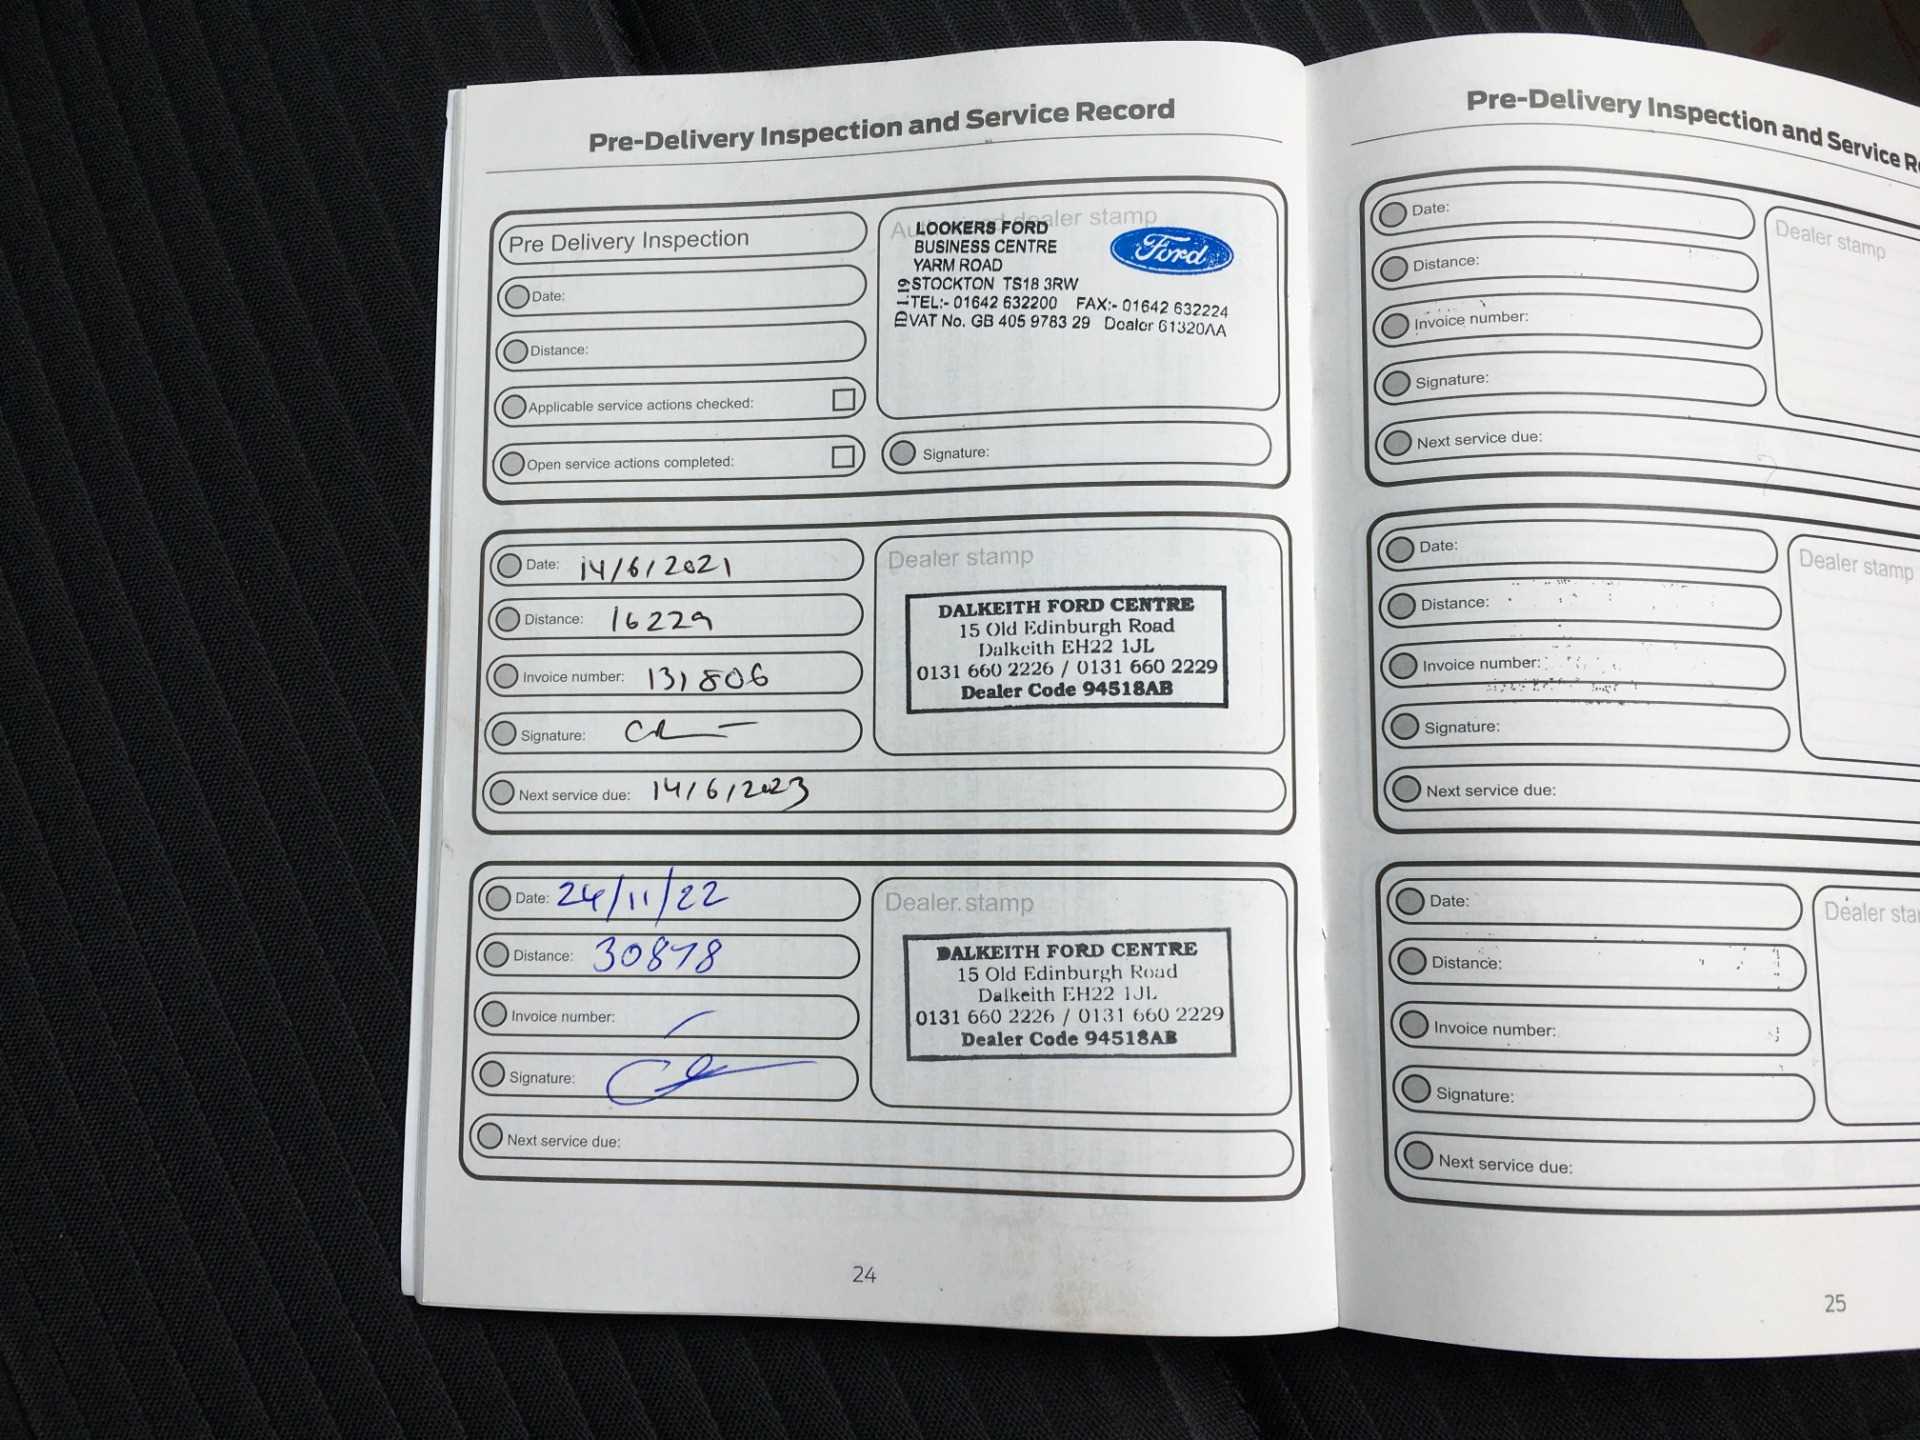 Pre-Delivery Inspection and Service Record
Pre Delivery Inspection
Date:
Distance:
Applicable service actions checked:
Open service actions completed:
dealer stamp
LOOKERS FORD
BUSINESS CENTRE
YARM ROAD
STOCKTON TS18 3RW
TEL:- 01642 632200 FAX:- 01642 632224
VAT No. GB 405 9783 29 Dealer 61320AA
Ford
Signature:
Date: 14/6/2021
Distance: 16229
Invoice number: 131806
Signature:
Next service due: 14/6/2023
Dealer stamp
DALKEITH FORD CENTRE
15 Old Edinburgh Road
Dalkeith EH22 1JL
0131 660 2226 / 0131 660 2229
Dealer Code 94518AB
Date: 24/11/22
Distance: 30878
Invoice number:
Signature:
Next service due:
Dealer stamp
DALKEITH FORD CENTRE
15 Old Edinburgh Road
Dalkeith EH22 1JL
0131 660 2226 / 0131 660 2229
Dealer Code 94518AB
24
Pre-Delivery Inspection and Service R
Date:
Distance:
Invoice number:
Signature:
Next service due:
Dealer stamp
Date:
Distance:
Invoice number:
Signature:
Next service due:
Dealer stamp
Date:
Distance:
Invoice number:
Signature:
Next service due:
Dealer sta
25